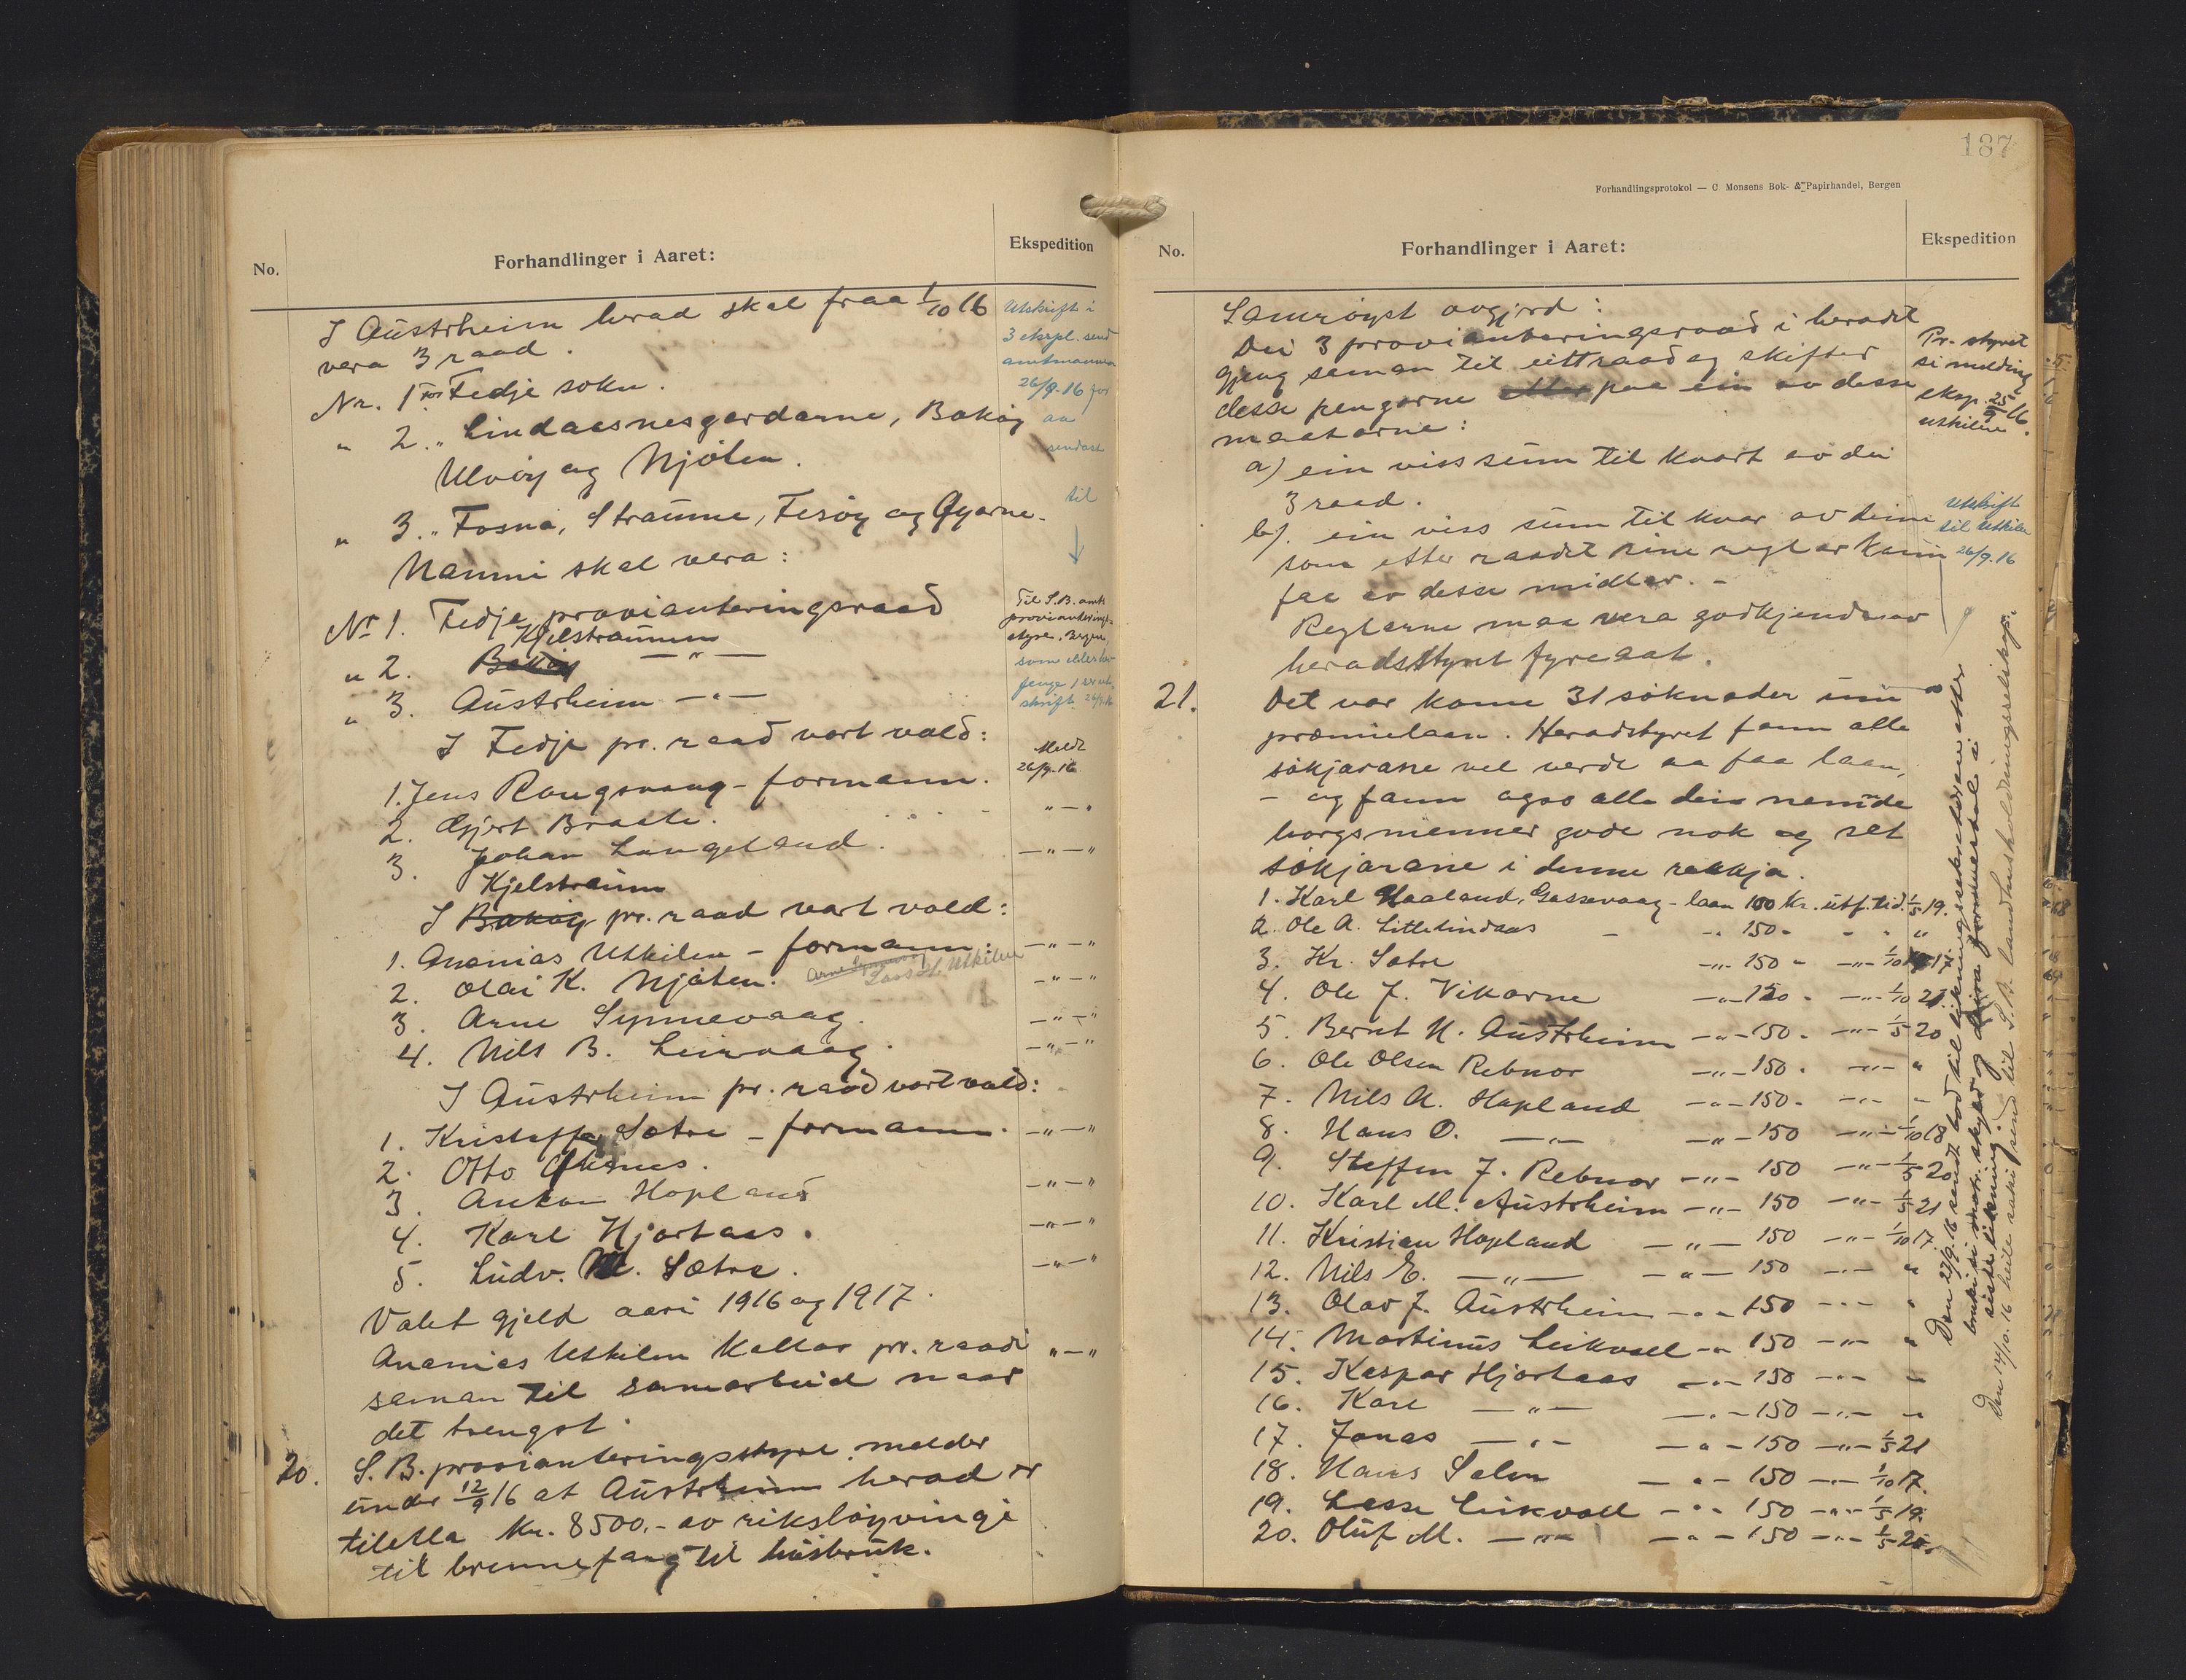 No.
Forhandlinger i Aaret:
Ekspedition
I Austrheim herad skal fraa 1/10 16
vera 3 raad.
Nr. 1 for Fedje sokn.
" 2. " Lindaasnesgardarne, Bakøy
Ulvøy og Njøten.
" 3. " Fosna, Straume, Fesøy og Øyarne.
Namni skal vera:
Nr 1. Fedje provianteringsraad
Kjelstraumen
" 2. Bakøy — " —
" 3. Austrheim — " —
I Fedje pr. raad vart vald:
1. Jens Rongevaag - formann.
2. Gjert Braate.
3. Johan Langeland.
Kjelstraum
I Bakøy pr. raad vart vald:
1. Ananias Utkilen - formann:
Arne Synnevaag
Lars L. Utkilen
2. Olai K. Njøten.
3. Arne Synnevaag.
4. Nils B. Leirvaag.
I Austrheim pr. raad vart vald:
1. Kristoffer Sætre - formann.
2. Otto
3. Anton Hopland
4. Karl Hjartaas.
5. Ludv. M. Sætre.
Valet gjeld aari 1916 og 1917.
Ananias Utkilen kallar pr. raadi
saman til samarbeid naar
det trengst.
20. S. B. provianteringsstyre melder
under 12/9 16 at Austrheim herad er
tiletla kr. 8500,- av riksløyvingi
til brennefang til husbruk.
Utskrift i
3 ekspl. send
amtmannen
26/9. 16 for
aa
sendast
til
Til S. B. amts
provianterings-
styre, Bergen,
som elles hev
fenge 1 ser. ut-
skrift. 26/9. 16
Meldt
26/9. 16
" — "
— " — "
— " — "
— " — "
— " — "
— " — "
— " — "
— " — "
— " — "
— " — "
" — "
187
Forhandlingsprotokol — C. Monsens Bok- & Papirhandel, Bergen
No.
Forhandlinger i Aaret:
Ekspedition
Samrøyst avgjord:
Dei 3 provianteringsraad i heradet
gjeng saman til eitt raad og skifter
desse pengarne paa ein av desse
maatarne:
a) ein viss sum til kvart av dei
3 raad.
b). ein viss sum til kvar av deim
som etter raadet sine reglar kann
faa av desse midlar. -
Reglarne maa vera godkjende av
heradsstyret fyreaat.
21. Det var kome 31 søknader um
præmielaan. Heradstyret fann alle
søkjarane vel verde aa faa laan,
- og fann ogso alle dei nemde
borgsmenner gode nok og set
søkjarane i denne rekkja.
1. Karl Haaland, Gassevaag - laan 100 kr. utf. tid. 1/5 19.
2. Ole A. Littlelindaas - -"- 150 - " - "
3. Kr. Sætre -"- 150 - -"- 1/10 17
4. Ole J. Vikarne -"- 150 - -"- 1/10 21.
5. Bernt N. Austrheim -"- 150 - -"- 1/5 20
6. Ole Olsen Rebnor -"- 150 - -"- "
7. Nils A. Hopland -"- 150 - -"- "
8. Hans O. —"— -"- 150 -"- 1/10 18
9. Steffen J. Rebnor -"- 150 -"- 1/5 20
10. Karl M. Austrheim -"- 150 -"- 1/5 21
11. Kristian Hopland -"- 150 -"- 1/10 17.
12. Nils E. —"— -"- 150 -"- "
13. Olav J. Austrheim -"- 150 -"- "
14. Martinus Leikvoll -"- 150 -"- "
15. Kaspar Hjartaas -"- 150 -"- "
16. Karl —"— -"- 150 -"- "
17. Jonas —"— -"- 150 -"- 1/5 21
18. Hans Salen -"- 150 -"- 1/10 17.
19. Lasse Leikvoll -"- 150 -"- 1/5 19.
20. Oluf M. —"— -"- 150 -"- 1/5 20.
Pr. styret
si melding
eksp. 25/9 16.
utkilen
Utskrift
til Utkilen
26/9. 16
Den 27/9. 16 sendt bod til likningssekretæren etter
bruki si skyld og deira formuestal i
siste likning.
Den 14/10. 16 heile saki send til S. B. landhusholdningsselskap.